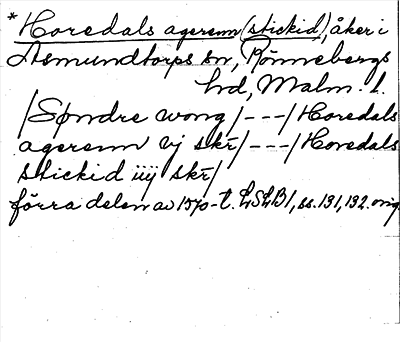 * Horedals agerenn (stickid), åker i
Asmundtorps sn, Rönnebergs
hd, Malm. l.
/Søndre wong/---/Horedals
agerenn vj skr̄/---/Horedals
stickid iiij skr̄/
förra delen av 1570-t. LSLB1, ss. 131, 132. orig.